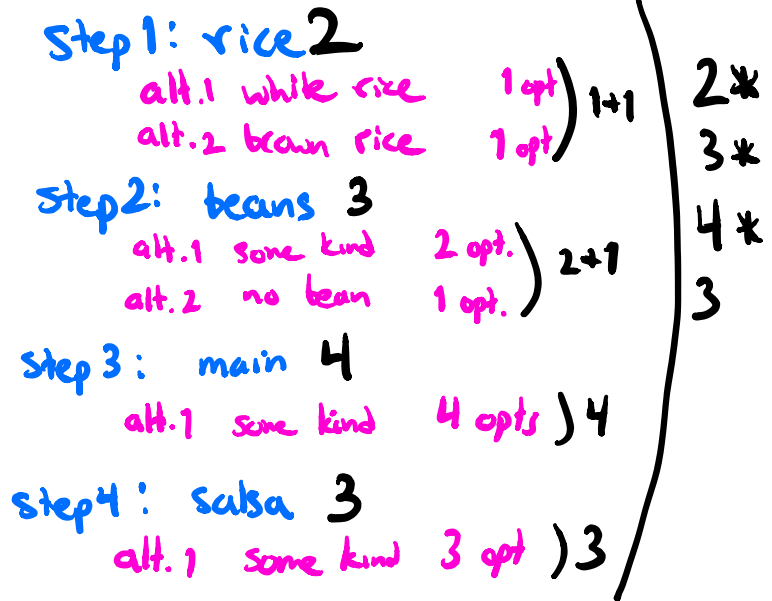 step 1: rice 2
alt.1 white rice 1 opt
alt.2 brown rice 1 opt
) 1+1
step 2: beans 3
alt.1 some kind 2 opt.
alt.2 no bean 1 opt.
) 2+1
step 3: main 4
alt.1 some kind 4 opts ) 4
step 4: salsa 3
alt.1 some kind 3 opt ) 3
2*
3*
4*
3